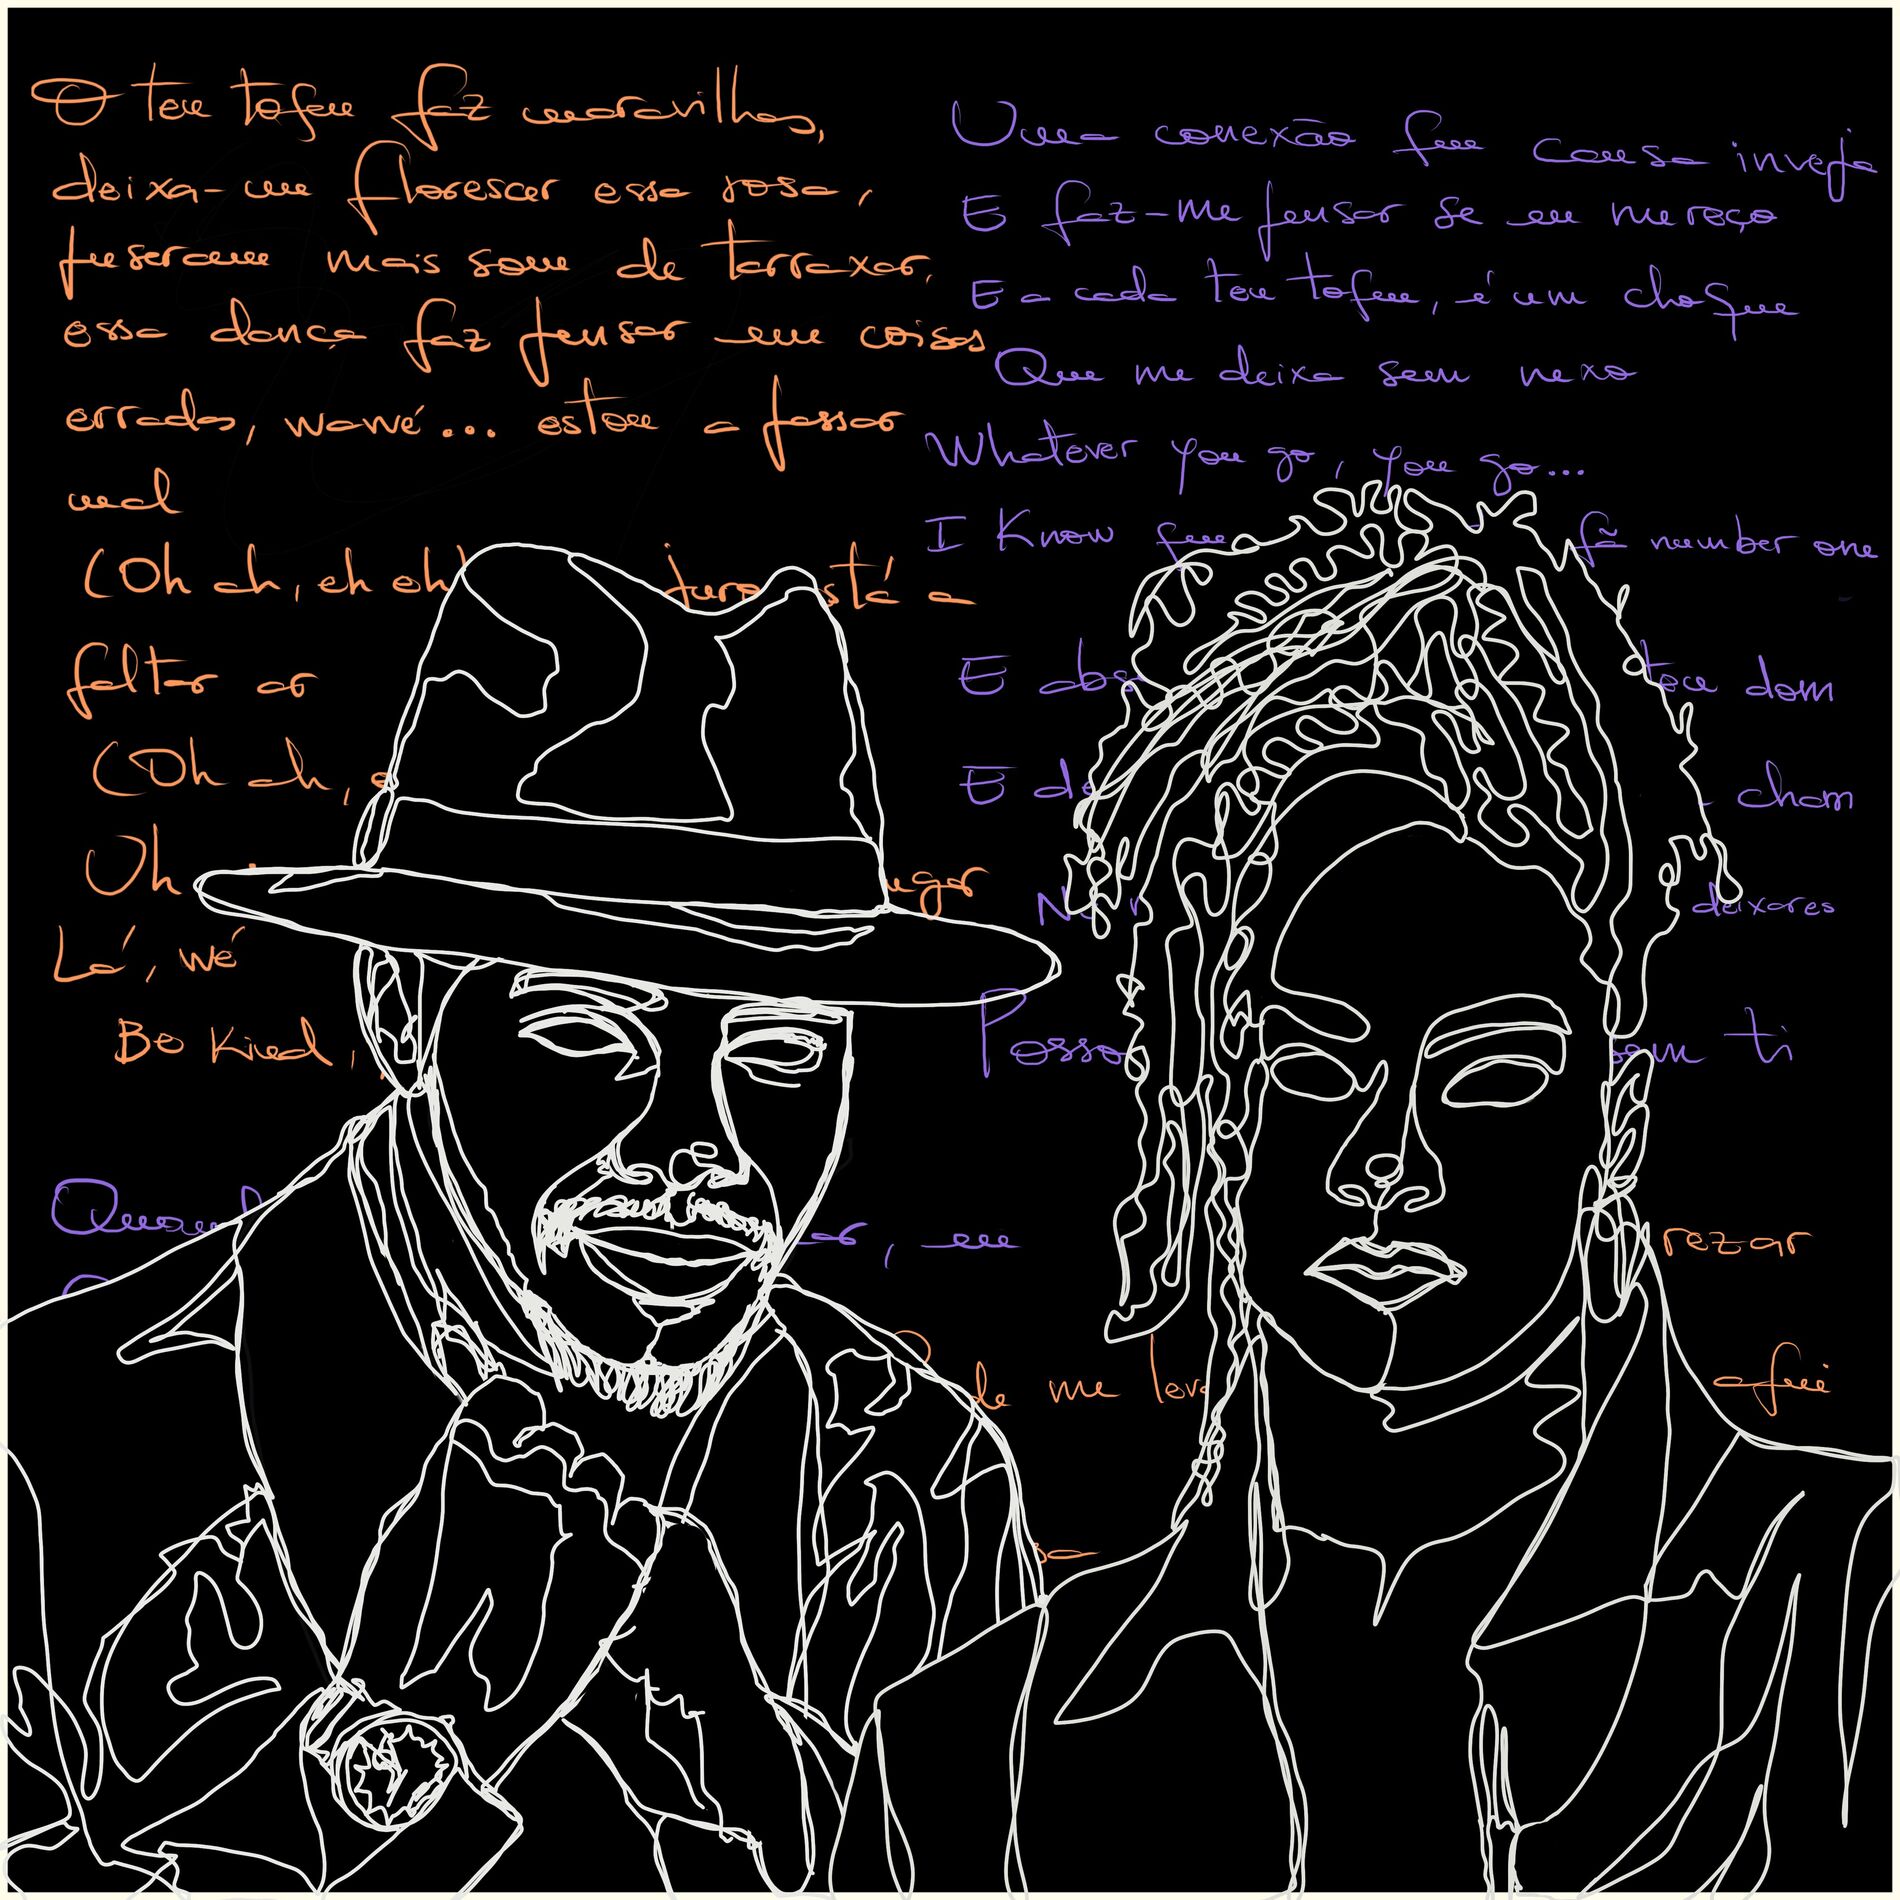 O teu toque faz maravilhas,
deixa-me florescer essa rosa,
puseram mais som de tarraxar,
essa dança faz pensar em coisas
erradas, wawé... estou a passar
mal
(Oh ah, eh eh) juro stá a
faltar ar
(Oh ah, e
Uh ugar
Lá, wé
Bo Kied,
Uma conexão que causa inveja
E faz-me pensar se eu mereço
E a cada teu toque, é um choque
Que me deixa sem nexo
Whatever you go, you go...
I Know que fã number one
E abs teu dom
E de chom
N deixares
Posso sem ti
Quand ar, eu rezar
de me leva aqui
sa